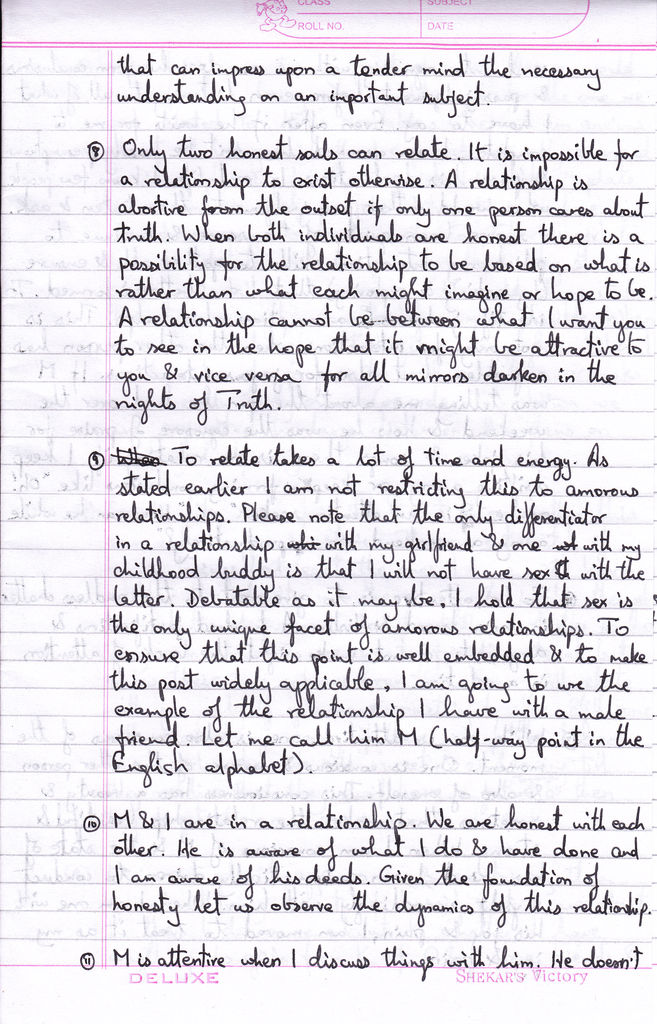 CLASS SUBJECT
ROLL NO. DATE
that can impress upon a tender mind the necessary
understanding on an important subject.
⑧ Only two honest souls can relate. It is impossible for
a relationship to exist otherwise. A relationship is
abortive from the outset if only one person cares about
truth. When both individuals are honest there is a
possibility for the relationship to be based on what is
rather than what each might imagine or hope to be.
A relationship cannot be between what I want you
to see in the hope that it might be attractive to
you & vice versa for all mirrors darken in the
nights of Truth.
⑨ To relate takes a lot of time and energy. As
stated earlier I am not restricting this to amorous
relationships. Please note that the only differentiator
in a relationship with my girlfriend & one with my
childhood buddy is that I will not have sex with the
latter. Debatable as it may be, I hold that sex is
the only unique facet of amorous relationships. To
ensure that this point is well embedded & to make
this post widely applicable, I am going to use the
example of the relationship I have with a male
friend. Let me call him M (half-way point in the
English alphabet).
⑩ M & I are in a relationship. We are honest with each
other. He is aware of what I do & have done and
I am aware of his deeds. Given the foundation of
honesty let us observe the dynamics of this relationship.
⑪ M is attentive when I discuss things with him. He doesn't
DELUXE SHEKAR'S Victory